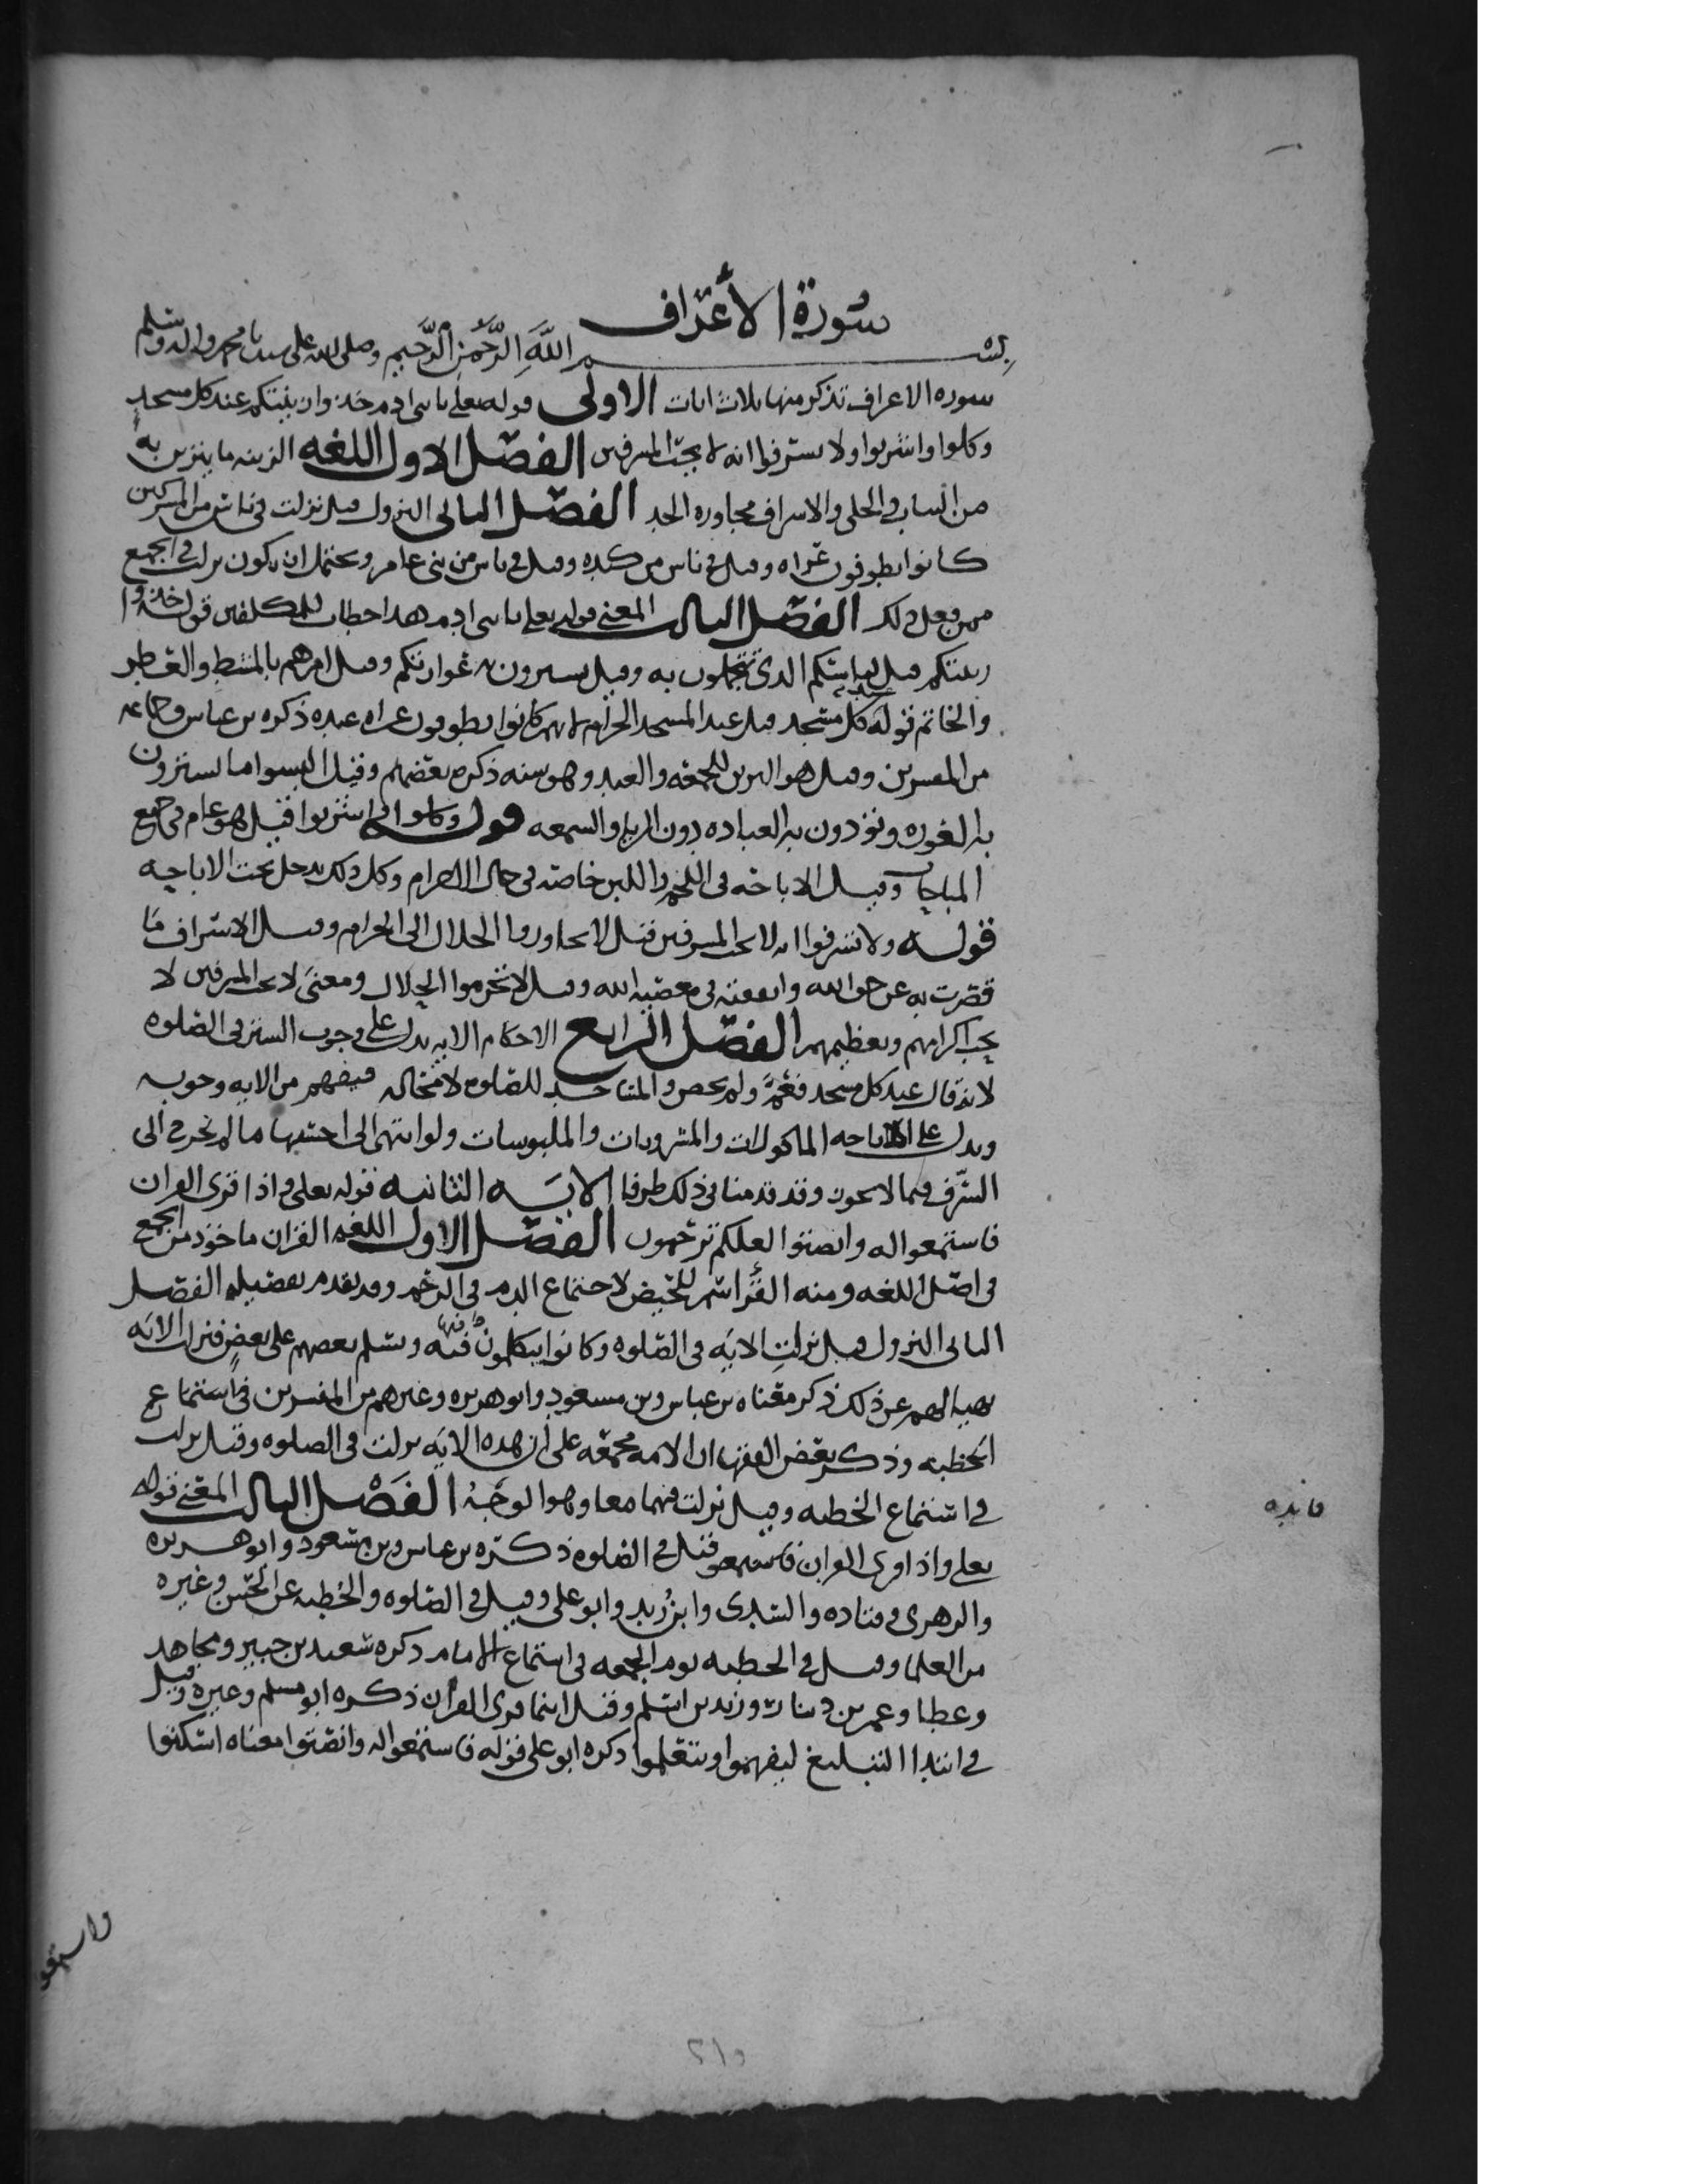 سورة الأعراف
بسم الله الرحمن الرحيم وصلى الله على سيدنا محمد واله وسلم
سوره الاعراف تذكر منها ثلاث ايات الاولى قوله تعلى يابنى ادم خذوا زينتكم عند كل مسجد
وكلوا واشربوا ولا تسرفوا انه لا يحب المسرفين الفصل الاول اللغه الزينه ما يتزين به
من الثياب والحلى والاسراف مجاوزه الحد الفصل الثانى النزول قيل نزلت فى ناس من المشركين
كانوا يطوفون عراه وقيل فى ناس من كنده وقيل فى ناس من بنى عامر ويحتمل ان يكون نزلت فى الجميع
ممن فعل ذلك الفصل الثالث المعنى قوله تعلى يابنى ادم هذا خطاب للمكلفين قوله خذوا
زينتكم قيل لباسكم الذى تتجملون به وقيل تسترون به عوراتكم وقيل امرهم بالمشط والعطر
والخاتم قوله عند كل مسجد قيل عند المسجد الحرام لانهم كانوا يطوفون عراه عنده ذكره بن عباس وجماعه
من المفسرين وقيل هو التزين للجمعه والعيد وهو سنه ذكره بعضهم وقيل البسوا ما تسترون
به العوره وتؤدون به العباده دون الريا والسمعه قوله وكلوا واشربوا قيل هو عام فى جميع
المباحات وقيل الاباحه فى اللحم واللبن خاصه فى حال الاحرام وكل ذلك يدخل تحت الاباحه
قوله ولا تسرفوا انه لا يحب المسرفين قيل لا تجاوزوا الحلال الى الحرام وقيل الاسراف ما
قصرت به عن حق الله وانفقته فى معصيه الله وقيل لا تحرموا الحلال ومعنى لا يحب المسرفين لا
يحب اكرامهم وتعظيمهم الفصل الرابع الاحكام الايه تدل على وجوب الستر فى الصلوه
لانه قال عند كل مسجد فعم ولم يخص والمساجد للصلوه لا محاله فيفهم من الايه وجوبه
وتدل على اباحه الماكولات والمشروبات والملبوسات ولو انتهى الى احسنها ما لم تخرج الى
السرف وما لا يجوز وقد قدمنا فى ذلك طرفا الايه الثانيه قوله تعلى واذا قرى القران
فاستمعوا له وانصتوا لعلكم ترحمون الفصل الاول اللغه القران ماخوذ من الجمع
فى اصل اللغه ومنه القرء اسم للحيض لاجتماع الدم فى الرحم وقد تقدم تفصيله الفصل
الثانى النزول قيل نزلت الايه فى الصلوه وكانوا يتكلمون فيها ويسلم بعضهم على بعض فنزلت الايه
نهيا لهم عن ذلك ذكر معناه بن عباس وبن مسعود وابو هريره وغيرهم من المفسرين فى استماع
الخطبه وذكر بعض الفقها ان الامه مجمعه على ان هذه الايه نزلت فى الصلوه وقيل نزلت
فى استماع الخطبه وقيل نزلت فيهما معا وهو الوجه الفصل الثالث المعنى قوله
تعلى واذا قرى القران فاستمعوا قيل فى الصلوه ذكره بن عباس وبن مسعود وابو هريره
والزهرى وقتاده والسدى وابن زيد وابو على وقيل فى الصلوه والخطبه عن الحسن وغيره
من العلما وقيل فى الخطبه يوم الجمعه فى استماع الامام ذكره سعيد بن جبير ومجاهد
وعطا وعمر بن دينار وزيد بن اسلم وقيل اينما قرى القران ذكره ابو مسلم وغيره وقيل
فى ابتدا التبليغ ليفهموا ويتعلموا ذكره ابو على قوله فاستمعوا له وانصتوا معناه اسكتوا
فائده
واستمعو